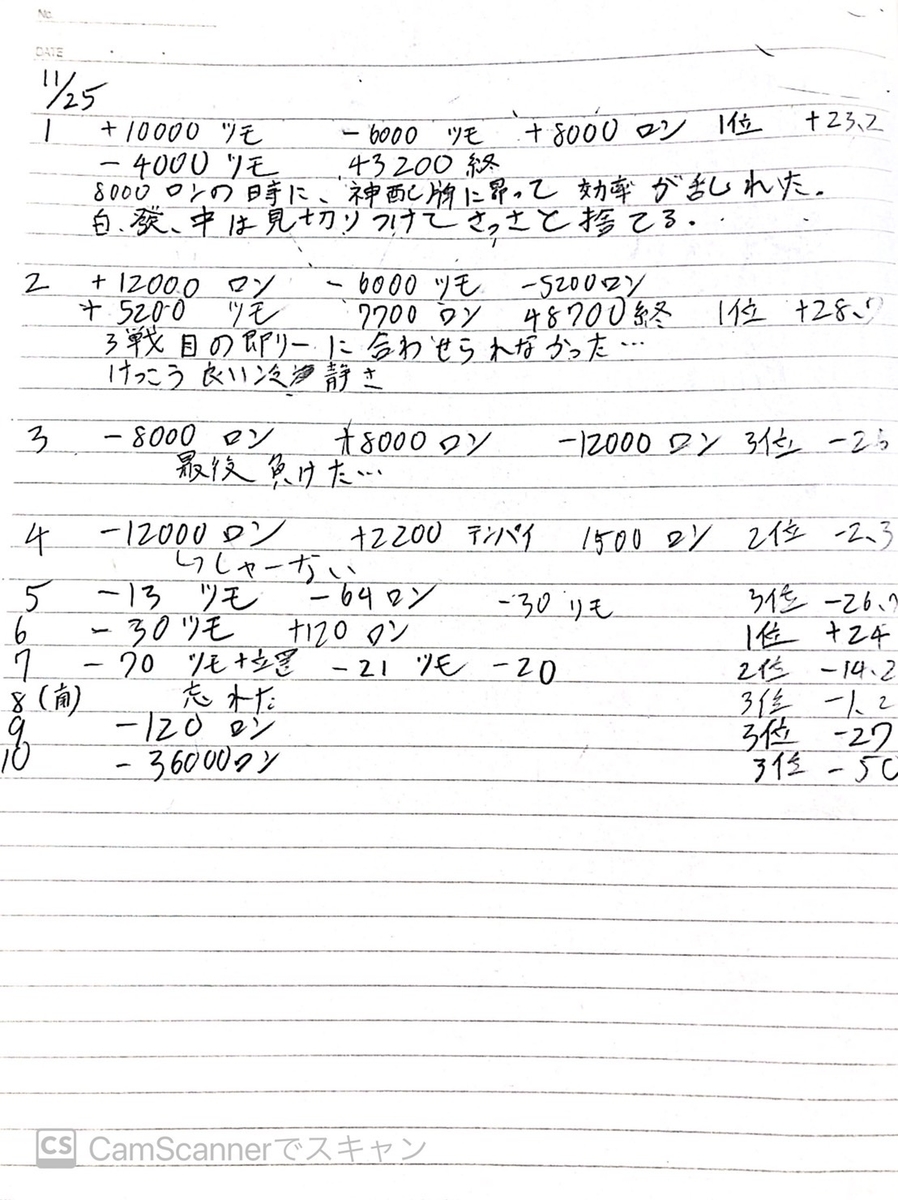 No.
DATE
11/25
1 +10000 ツモ -6000 ツモ +8000 ロン 1位 +23.2
-4000 ツモ 43200 終
8000 ロンの時に、神配牌に昂って 効率が乱れた。
白、發、中は見切りつけてさっさと捨てる.
2 +12000 ロン -6000 ツモ -5200ロン
+5200 ツモ 7700 ロン 48700終 1位 +28.
3戦目の即リーに合わせられなかった…
けっこう良い冷静さ
3 -8000 ロン +8000 ロン -12000 ロン 3位
最後負けた…
4 -12000 ロン +2200 テンパイ 1500 ロン 2位 -2.3
しゃーない
5 -13 ツモ -64ロン -30 ツモ 3位 -26.
6 -30ツモ +120 ロン 1位 +24
7 -70 ツモ+立置 -21 ツモ -20 2位 -14.2
8 (南) 忘れた 3位 -1.2
9 -120 ロン 3位 -27
10 -36000ロン 3位 -50
CS CamScannerでスキャン